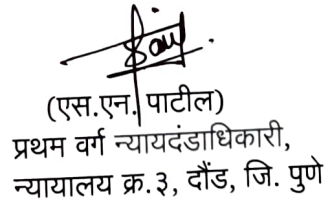 (एस.एन. पाटील)
प्रथम वर्ग न्यायदंडाधिकारी,
न्यायालय क्र.३, दौंड, जि. पुणे